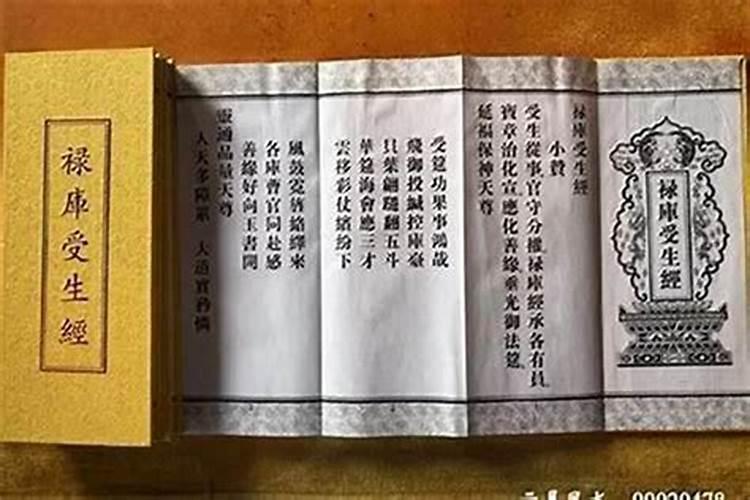 禄庫受生經
禄庫受生經
禄庫受生經
小贊
受生從事官守分權禄庫經承各有員
寶章治化宣應化善緣垂光御法筵
延福保神天尊
受筵功果事鴻哉
飛御投緘控庫臺
貝葉翩翻五斗
華筵海會應三才
雲移彩仗繽紛下
風鼓霓旌絡繹來
各庫曹官同赴感
善緣好向玉書開
靈通品量天尊
人天多障累 大道實矜憐